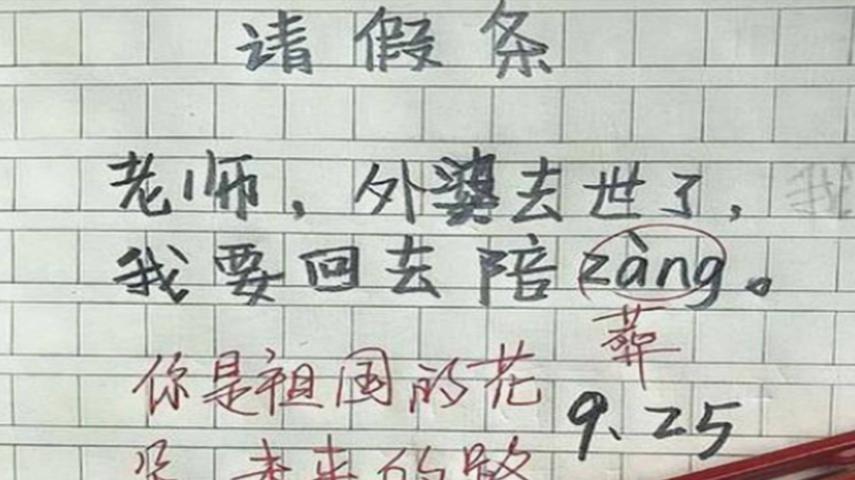 请假条
老师，外婆去世了，
我要回去陪zàng。
葬
你是祖国的花
9.25
未来的路